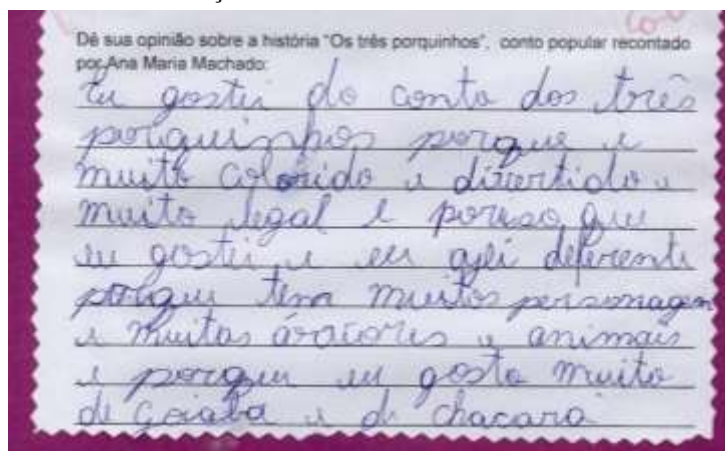 Dê sua opinião sobre a história "Os três porquinhos", conto popular recontado
por Ana Maria Machado:
Eu gostei do conto dos três
porquinhos porque e
muito colorido e divertido e
muito legal e poriso que
eu gostei e eu ajei deferente
porque tem muitos personagen
e muitas e animais
e porque eu gosto muito
de goiaba e de chacara